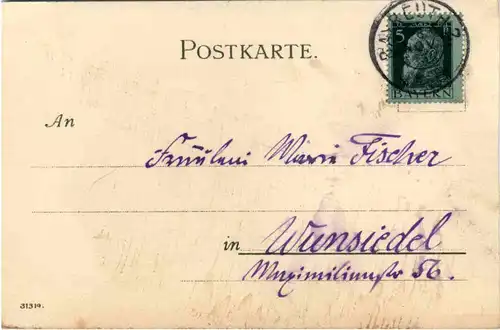 BAYREUTH 2
5
BAYERN
POSTKARTE.
An
Fräulein Marie Fischer
in Wunsiedel
Maximilianstr 56.
31319.